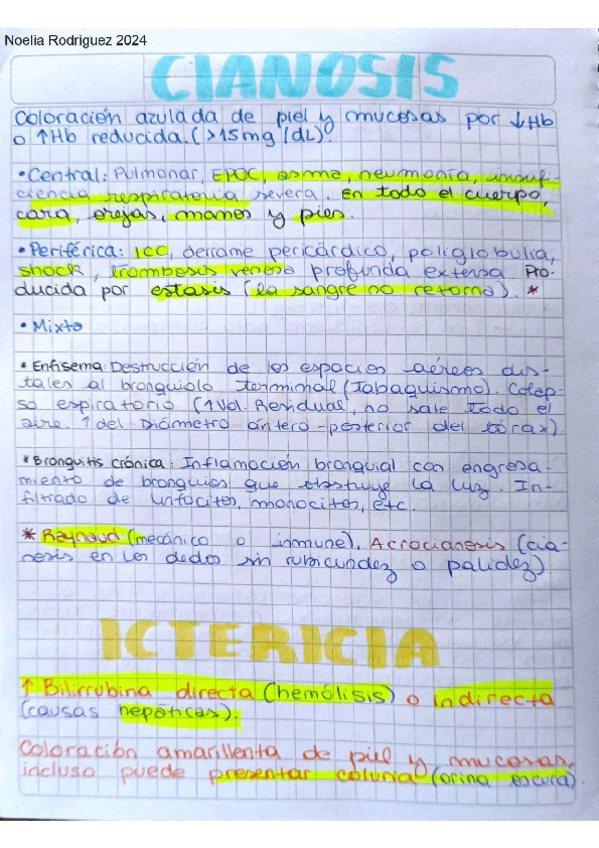 Noelia Rodriguez 2024
CIANOSIS
Coloración azulada de piel y mucosas por ↓Hb
o ↑Hb reducida. (>15mg/dL).
• Central: Pulmonar, EPOC, asma, neumonía, insufi-
ciencia respiratoria severa. En todo el cuerpo,
cara, orejas, manos y pies.
• Periférica: ICC, derrame pericárdico, poliglobulia,
shock, trombosis venosa profunda extensa. Pro-
ducida por estasis (la sangre no retorna). *
• Mixta
* Enfisema: Destrucción de los espacios aéreos dis-
tales al bronquiolo terminal (Tabaquismo). Colap-
so espiratorio (↑Vol. Residual, no sale todo el
aire. ↑ del Diámetro antero-posterior del tórax).
* Bronquitis crónica: Inflamación bronquial con engrosa-
miento de bronquios que obstruye la luz. In-
filtrado de linfocitos, monocitos, etc.
* Raynaud (mecánico o inmune). Acrocianosis (cia-
nosis en los dedos sin rubicundez o palidez)
ICTERICIA
↑ Bilirrubina directa (hemólisis) o indirecta
(causas hepáticas).
Coloración amarillenta de piel y mucosas,
incluso puede presentar coluria (orina oscura).